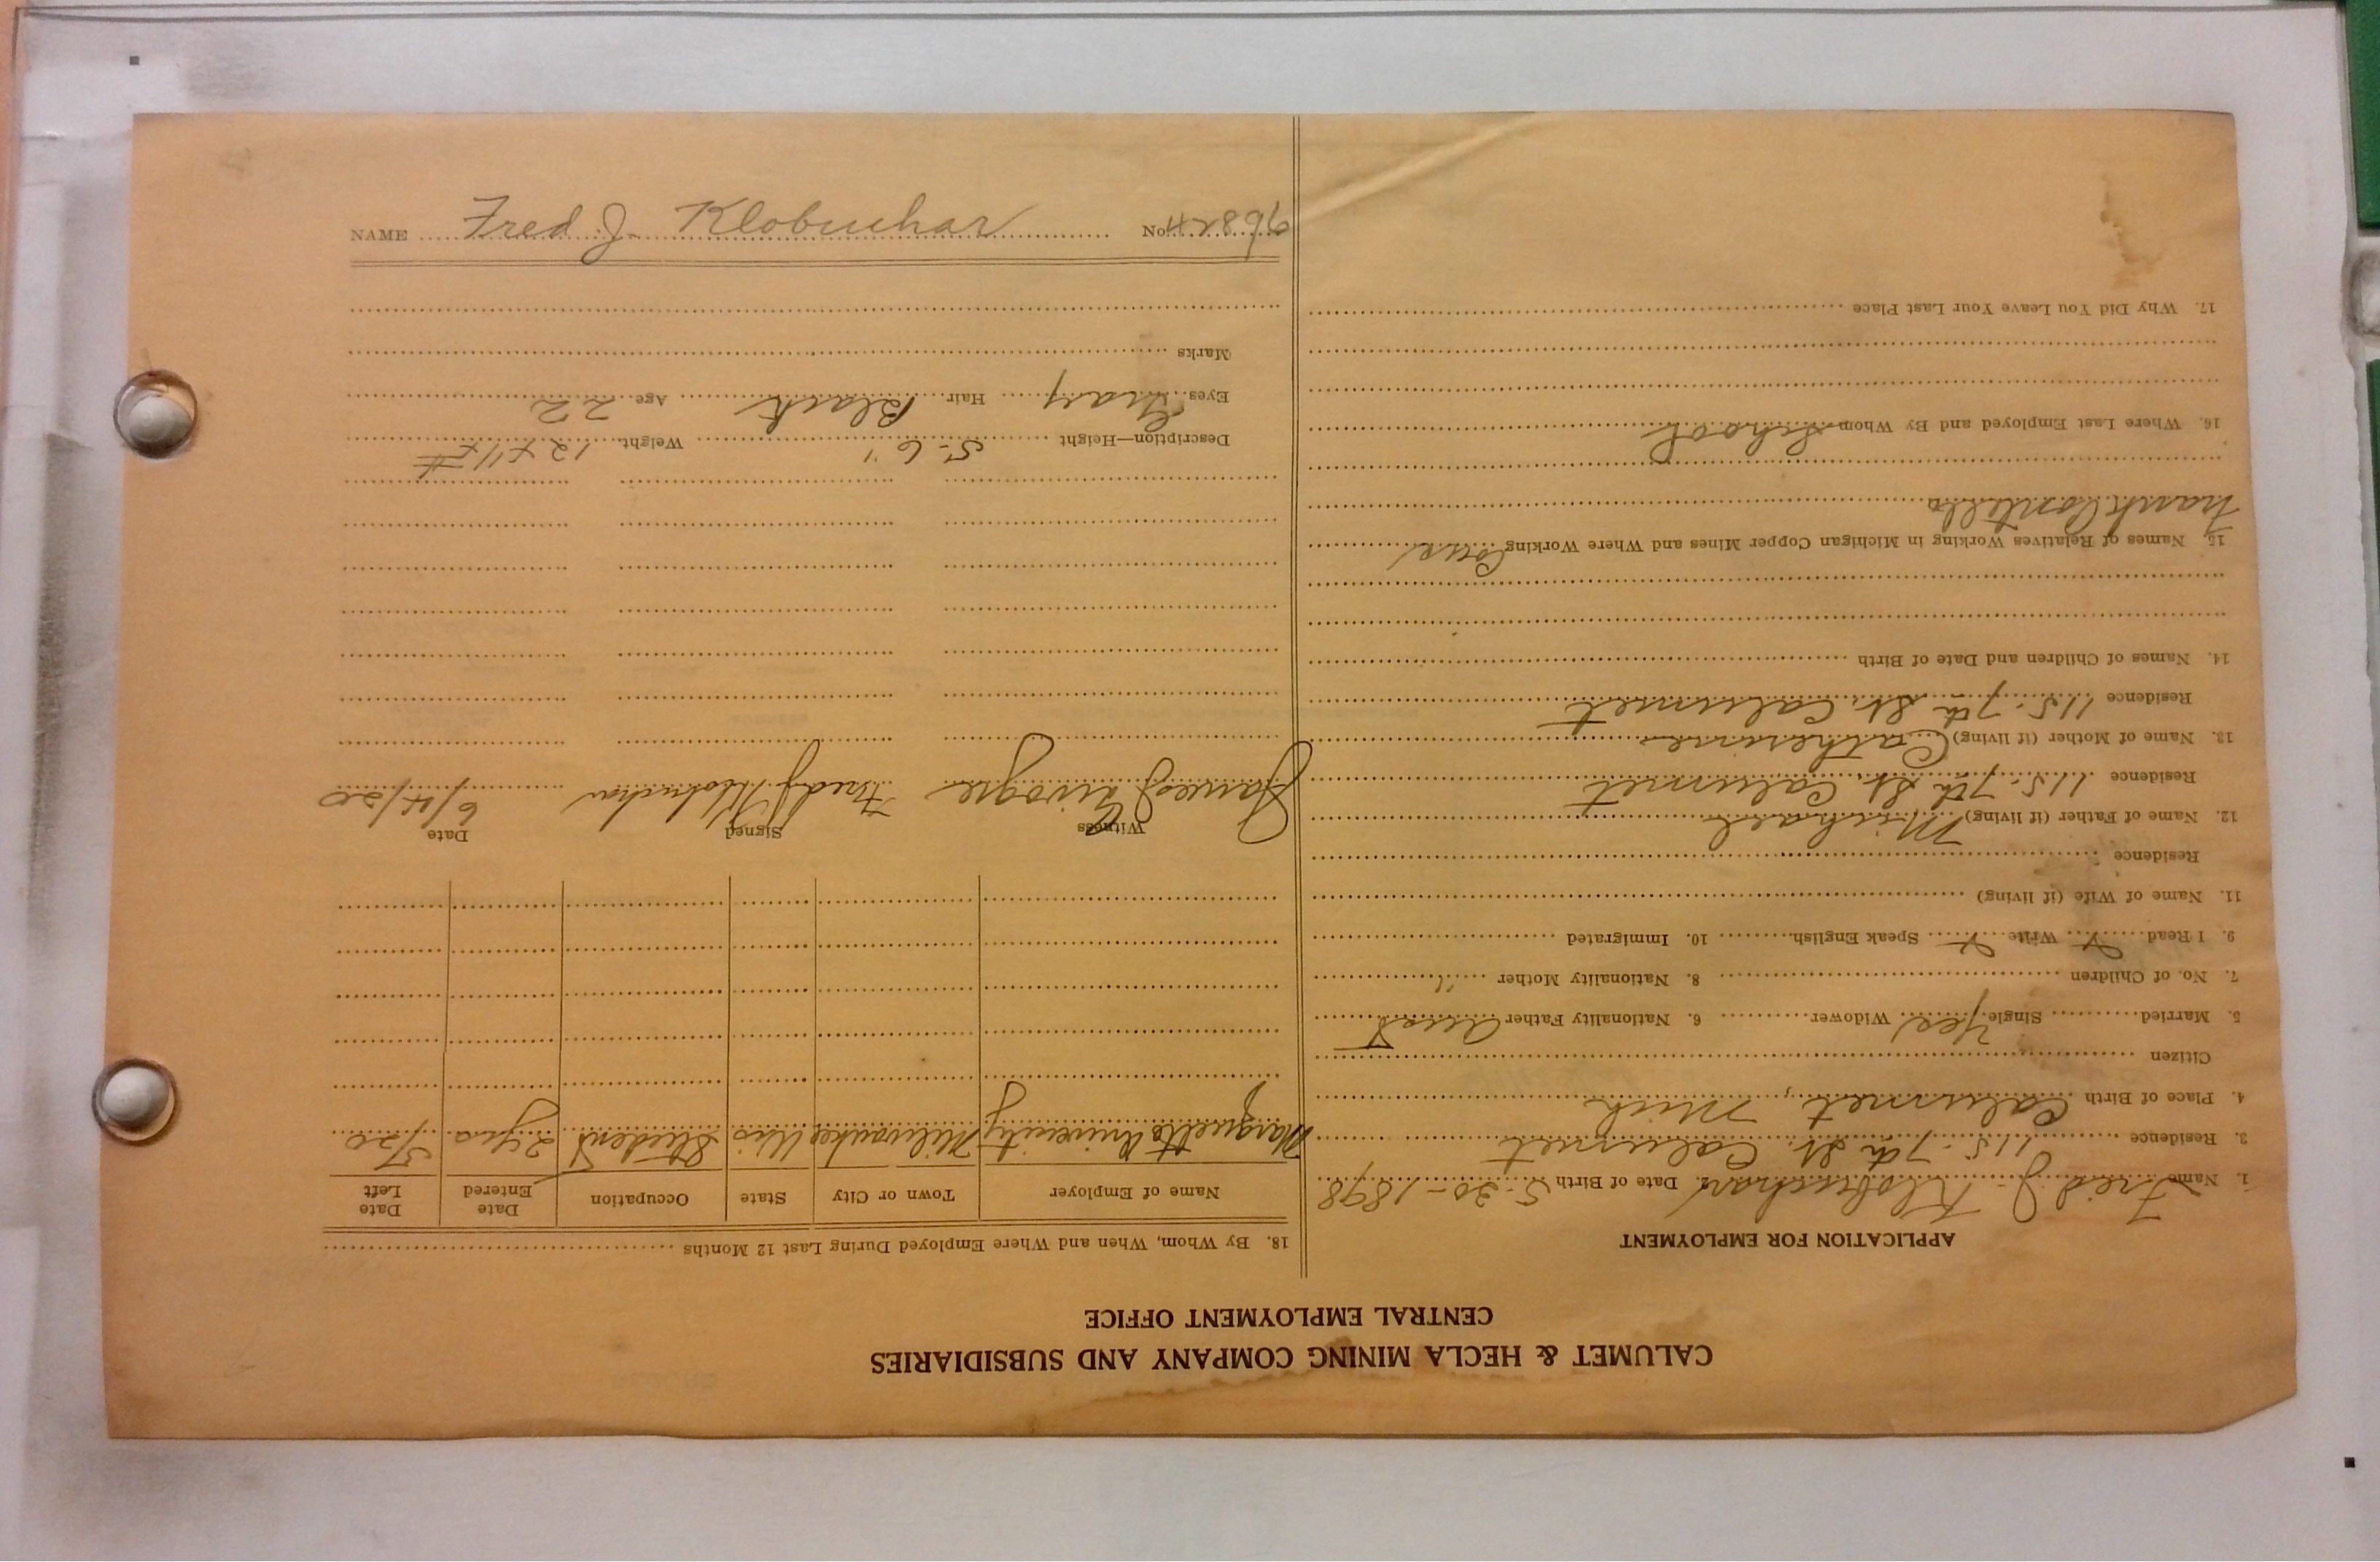 CALUMET & HECLA MINING COMPANY AND SUBSIDIARIES
CENTRAL EMPLOYMENT OFFICE
APPLICATION FOR EMPLOYMENT
1. Name Fred J Klobuchar 2. Date of Birth 5-30-1898
3. Residence 115-7th St. Calumet
4. Place of Birth Calumet, Mich
Citizen
5. Married Single Yes Widower 6. Nationality Father Aust
7. No. of Children 8. Nationality Mother "
9. I Read Write Speak English 10. Immigrated
11. Name of Wife (if living)
Residence
12. Name of Father (if living) Michael
Residence 115-7th St. Calumet
13. Name of Mother (if living) Catherine
Residence 115-7th St. Calumet
14. Names of Children and Date of Birth
15. Names of Relatives Working in Michigan Copper Mines and Where Working Cous
Frank Costello
16. Where Last Employed and By Whom School
17. Why Did You Leave Your Last Place
18. By Whom, When and Where Employed During Last 12 Months
Name of Employer Town or City State Occupation Date Entered Date Left
Marquette University Milwaukee Wis Student 2 yrs 5/20
Witness Signed Date
James Fred J Klobuchar 6/4/20
Description—Height 5-6" Weight
Eyes Gray Hair Black Age 22
Marks
NAME Fred J. Klobuchar No. 42896